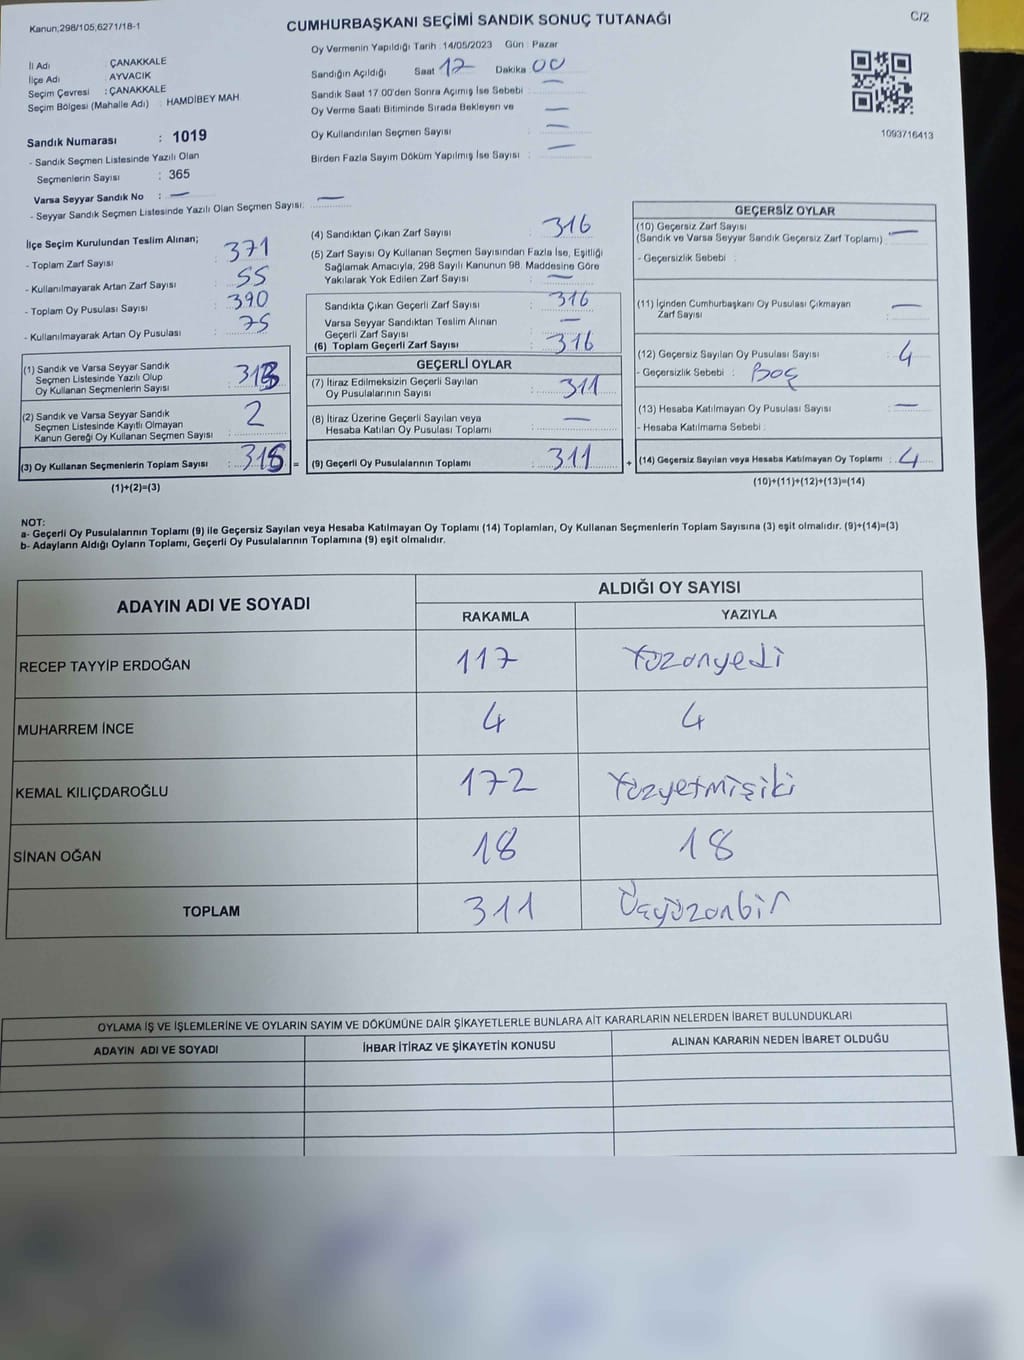 Kanun,298/105,6271/18-1
CUMHURBAŞKANI SEÇİMİ SANDIK SONUÇ TUTANAĞI
C/2
İl Adı : ÇANAKKALE
İlçe Adı : AYVACIK
Seçim Çevresi : ÇANAKKALE
Seçim Bölgesi (Mahalle Adı) : HAMDİBEY MAH.
Sandık Numarası : 1019
- Sandık Seçmen Listesinde Yazılı Olan
Seçmenlerin Sayısı : 365
Varsa Seyyar Sandık No : —
- Seyyar Sandık Seçmen Listesinde Yazılı Olan Seçmen Sayısı: —
Oy Vermenin Yapıldığı Tarih : 14/05/2023 Gün : Pazar
Sandığın Açıldığı Saat 17 Dakika : 00
Sandık Saat 17.00'den Sonra Açımış İse Sebebi : —
Oy Verme Saati Bitiminde Sırada Bekleyen ve —
Oy Kullandırılan Seçmen Sayısı : —
Birden Fazla Sayım Döküm Yapılmış İse Sayısı : —
1093716413
İlçe Seçim Kurulundan Teslim Alınan;
- Toplam Zarf Sayısı : 371
- Kullanılmayarak Artan Zarf Sayısı : 55
- Toplam Oy Pusulası Sayısı : 390
- Kullanılmayarak Artan Oy Pusulası : 75
(1) Sandık ve Varsa Seyyar Sandık
Seçmen Listesinde Yazılı Olup
Oy Kullanan Seçmenlerin Sayısı : 313
(2) Sandık ve Varsa Seyyar Sandık
Seçmen Listesinde Kayıtlı Olmayan
Kanun Gereği Oy Kullanan Seçmen Sayısı : 2
(3) Oy Kullanan Seçmenlerin Toplam Sayısı : 315 =
(1)+(2)=(3)
(4) Sandıktan Çıkan Zarf Sayısı : 316
(5) Zarf Sayısı Oy Kullanan Seçmen Sayısından Fazla İse, Eşitliği
Sağlamak Amacıyla, 298 Sayılı Kanunun 98. Maddesine Göre
Yakılarak Yok Edilen Zarf Sayısı : —
Sandıkta Çıkan Geçerli Zarf Sayısı : 316
Varsa Seyyar Sandıktan Teslim Alınan
Geçerli Zarf Sayısı : —
(6) Toplam Geçerli Zarf Sayısı : 316
GEÇERLİ OYLAR
(7) İtiraz Edilmeksizin Geçerli Sayılan
Oy Pusulalarının Sayısı : 311
(8) İtiraz Üzerine Geçerli Sayılan veya
Hesaba Katılan Oy Pusulası Toplamı : —
(9) Geçerli Oy Pusulalarının Toplamı : 311 +
GEÇERSİZ OYLAR
(10) Geçersiz Zarf Sayısı
(Sandık ve Varsa Seyyar Sandık Geçersiz Zarf Toplamı) : —
- Geçersizlik Sebebi :
(11) İçinden Cumhurbaşkanı Oy Pusulası Çıkmayan
Zarf Sayısı : —
(12) Geçersiz Sayılan Oy Pusulası Sayısı : 4
- Geçersizlik Sebebi : Boş
(13) Hesaba Katılmayan Oy Pusulası Sayısı : —
- Hesaba Katılmama Sebebi :
(14) Geçersiz Sayılan veya Hesaba Katılmayan Oy Toplamı : 4
(10)+(11)+(12)+(13)=(14)
NOT:
a- Geçerli Oy Pusulalarının Toplamı (9) ile Geçersiz Sayılan veya Hesaba Katılmayan Oy Toplamı (14) Toplamları, Oy Kullanan Seçmenlerin Toplam Sayısına (3) eşit olmalıdır. (9)+(14)=(3)
b- Adayların Aldığı Oyların Toplamı, Geçerli Oy Pusulalarının Toplamına (9) eşit olmalıdır.
ADAYIN ADI VE SOYADI ALDIĞI OY SAYISI
RAKAMLA YAZIYLA
RECEP TAYYİP ERDOĞAN 117 Yüzonyedi
MUHARREM İNCE 4 4
KEMAL KILIÇDAROĞLU 172 Yüzyetmişiki
SİNAN OĞAN 18 18
TOPLAM 311 Üçyüzonbir
OYLAMA İŞ VE İŞLEMLERİNE VE OYLARIN SAYIM VE DÖKÜMÜNE DAİR ŞİKAYETLERLE BUNLARA AİT KARARLARIN NELERDEN İBARET BULUNDUKLARI
ADAYIN ADI VE SOYADI İHBAR İTİRAZ VE ŞİKAYETİN KONUSU ALINAN KARARIN NEDEN İBARET OLDUĞU